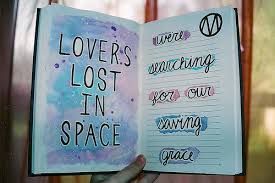 LOVERS
LOST
IN
SPACE
were
searching
for our
saving
grace